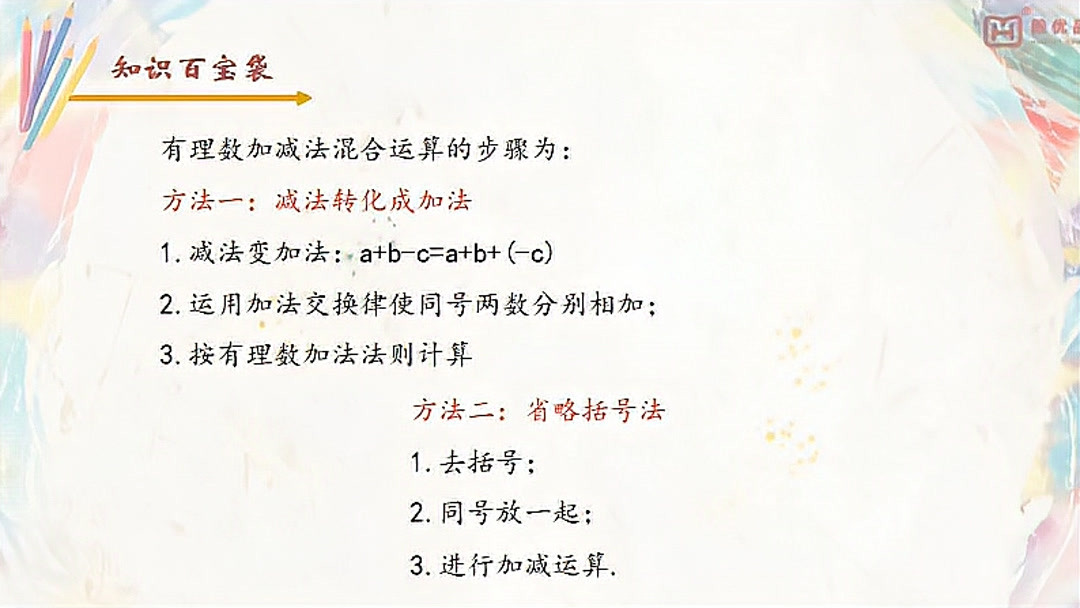 知识百宝袋
有理数加减法混合运算的步骤为：
方法一：减法转化成加法
1.减法变加法：a+b-c=a+b+(-c)
2.运用加法交换律使同号两数分别相加；
3.按有理数加法法则计算
方法二：省略括号法
1.去括号；
2.同号放一起；
3.进行加减运算.